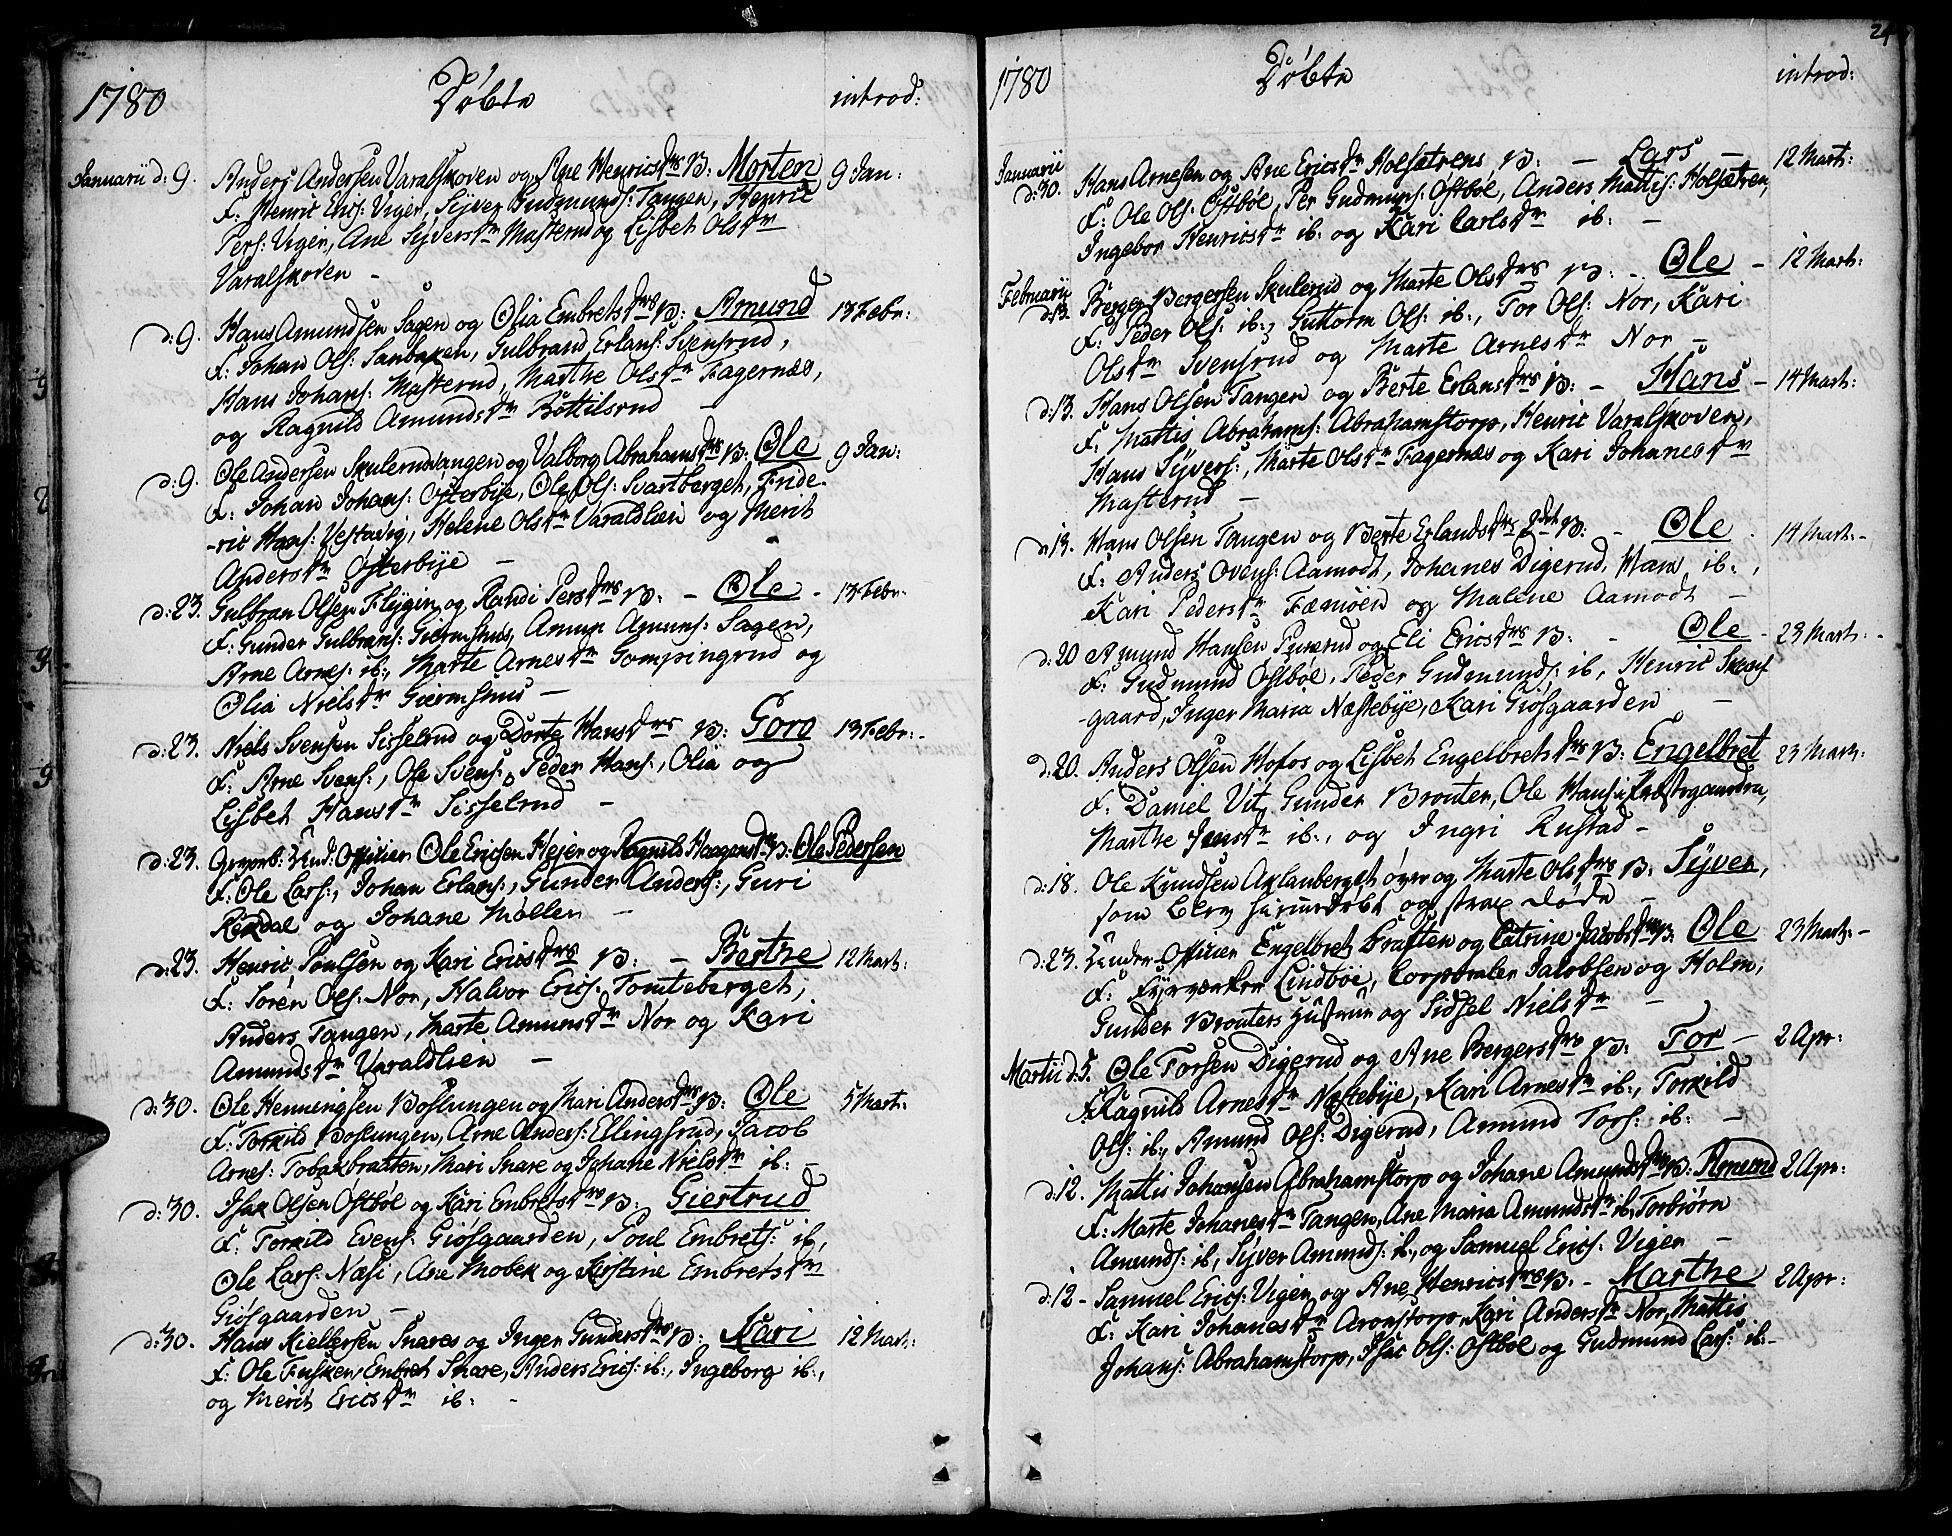 1780 Döbte introd:
Januarii d: 9. Anders Andersen Varalskoven og Ane Henricsdrs B: Morten 9 Jan:
F: Henric Erics: Vigen, Syver Gudmunds: Tangen, Henric
Pers: Vigen, Ane Syversdr Masterud og Lisbet Olsdr
Varalskoven -
d: 9. Hans Amundsen Sagen og Olia Embretsdrs B: Amund 13 Febr:
F: Johan Ols: Sanbaken, Gulbrand Erlans: Svensrud,
Hans Johans: Masterud, Marthe Olsdr Fagernæs,
og Ragnild Amundsdr Bottilsrud -
d: 9. Ole Andersen Skulerudvangen og Valborg Abrahamsdrs B: Ole 9 Jan:
F: Johan Johans: Østerbye, Ole Ols: Svartberget, Fride-
-ric Hans: Vestavig, Helene Olsdr Varaldlien og Merit
Andersdr Østerbye -
d: 23. Gulbran Olsen Flygin og Randi Persdrs B: - Ole - 13 Febr:
F: Gunder Gulbrans: Giermshus, Amun Amuns: Sagen,
Arne Arnes: ib:, Marte Arnesdr Gompingrud og
Olia Nielsdr Giermshus -
d: 23. Niels Svensen Sisselrud og Dorte Hansdrs B: Goro 13 Febr: -
F: Arne Svens:, Ole Svens:, Peder Hans:, Olia og
Lisbet Hansdr Sisselrud -
d: 23. Gevorb: Und: Officier Ole Ericsen Hejer og Ragnild Haagensdrs B: Ole Pedersen
F: Ole Lars:, Johan Erlans:, Gunder Anders:, Guri
Rexdal og Johane Møller -
d: 23. Henric Poulsen og Kari Ericsdrs B: - Berthe 12 Mart:
F: Soren Ols: Nor, Halvor Erics: Tomteberget,
Anders Tangen, Marte Amunsdr Nor og Kari
Amundsdr Varaldlien -
d: 30. Ole Henningsen Boslungen og Mari Andersdrs B: Ole 5 Mart:
F: Torkild Boslungen, Arne Anders: Ellingsrud, Jacob
Arnes: Tobakbratten, Mari Snare og Johane Nielsdr ib: -
d: 30. Isak Olsen Østbøl og Kari Embretsdrs B: Giertrud
F: Torkild Evens: Giøsgaarden, Poul Embrets: ib,
Ole Lars: Næsi, Ane Mobek og Kirstine Embretsdr
Giøsgaarden -
d: 30. Hans Kieldersen Snares og Inger Gundersdrs B: Kari 12 Mart:
F: Ole Fusken, Embret Snare, Anders Erics: ib:, Ingeborg ib:,
og Merit Ericsdr ib: -
24
1780 Döbte introd:
Januarii d: 30. Hans Arnesen og Ane Ericsdr Holsætrens B: - Lars - 12 Mart:
F: Ole Ols: Østbøl, Per Gudmuns: Østbøl, Anders Mattis: Holsætren,
Ingebor Henricsdr ib: og Kari Carlsdr ib: -
Februarii d: 13. Berger Bergersen Skulerud og Marte Olsdrs B: - Ole - 12 Mart:
F: Peder Ols: ib:, Guttorm Ols: ib:, Tor Ols: Nor, Kari
Olsdr Svensrud og Marte Arnesdr Nor -
d: 13. Hans Olsen Tangen og Berte Erlansdrs B: - Hans - 14 Mart:
F: Mattis Abrahams: Abrahamstorp, Henric Varalskoven,
Hans Syvers:, Marte Olsdr Fagernæs og Kari Johanesdr
Masterud -
d: 13. Hans Olsen Tangen og Berte Erlandsdrs 2det B: - Ole 14 Mart: -
F: Anders Ovens: Aamodt, Johanes Digerud, Hans ib:,
Kari Pedersdr Fæmoen og Malene Aamodt -
d: 20 Amund Hansen Punerud og Eli Ericsdrs B: - Ole - 23 Mart: -
F: Gudmund Østbøl, Peder Gudmunds: ib, Henric Skans
-gaard, Inger Maria Næstebye, Kari Giøsgaarden -
d: 20. Anders Olsen Hofos og Lisbet Engelbretsdrs B: Engelbret 23 Mart:
F: Daniel Vit, Gunder Brouter, Ole Hans: i Præstegaarden,
Marthe Jensdr ib:, og Ingri Rustad -
d: 18. Ole Knudsen Aklanberget øvre og Marte Olsdrs B: Syver,
som blev hiemdøbt og strax døde -
d: 23. Under Officier Engelbret Bratten og Catrine Jacobsdrs B: Ole 23 Mart: -
F: Fyrværker Lindboe, Corporaler Jacobsen og Holm,
Gunder Brouters Hustrue og Sidsel Nielsdr -
Martii d: 5. Ole Torsen Digerud og Ane Bergersdrs B: Tor - 2 Apr:
F: Ragnild Arnesdr Næstebye, Kari Arnesdr ib:, Torkild
Ols: ib:, Amund Ols: Digerud, Amund Tors: ib: -
d: 12. Mattis Johansen Abrahamstorp og Johane Amundsdrs B: Amund 2 Apr:
F: Marte Johanesdr Tangen, Ane Maria Amundsdr ib, Torbiørn
Amunds: ib, Syver Amunds: ib:, og Samuel Erics: Vigen -
d: 12 - Samuel Erics: Vigen og Ane Henricsdrs B: - Marthe 2 Apr:
F: Kari Johanesdr Aronstorp, Kari Andersdr Nor, Mattis
Johans: Abrahamstorp, Isac Ols: Østbøl og Gudmund Lars: ib: -